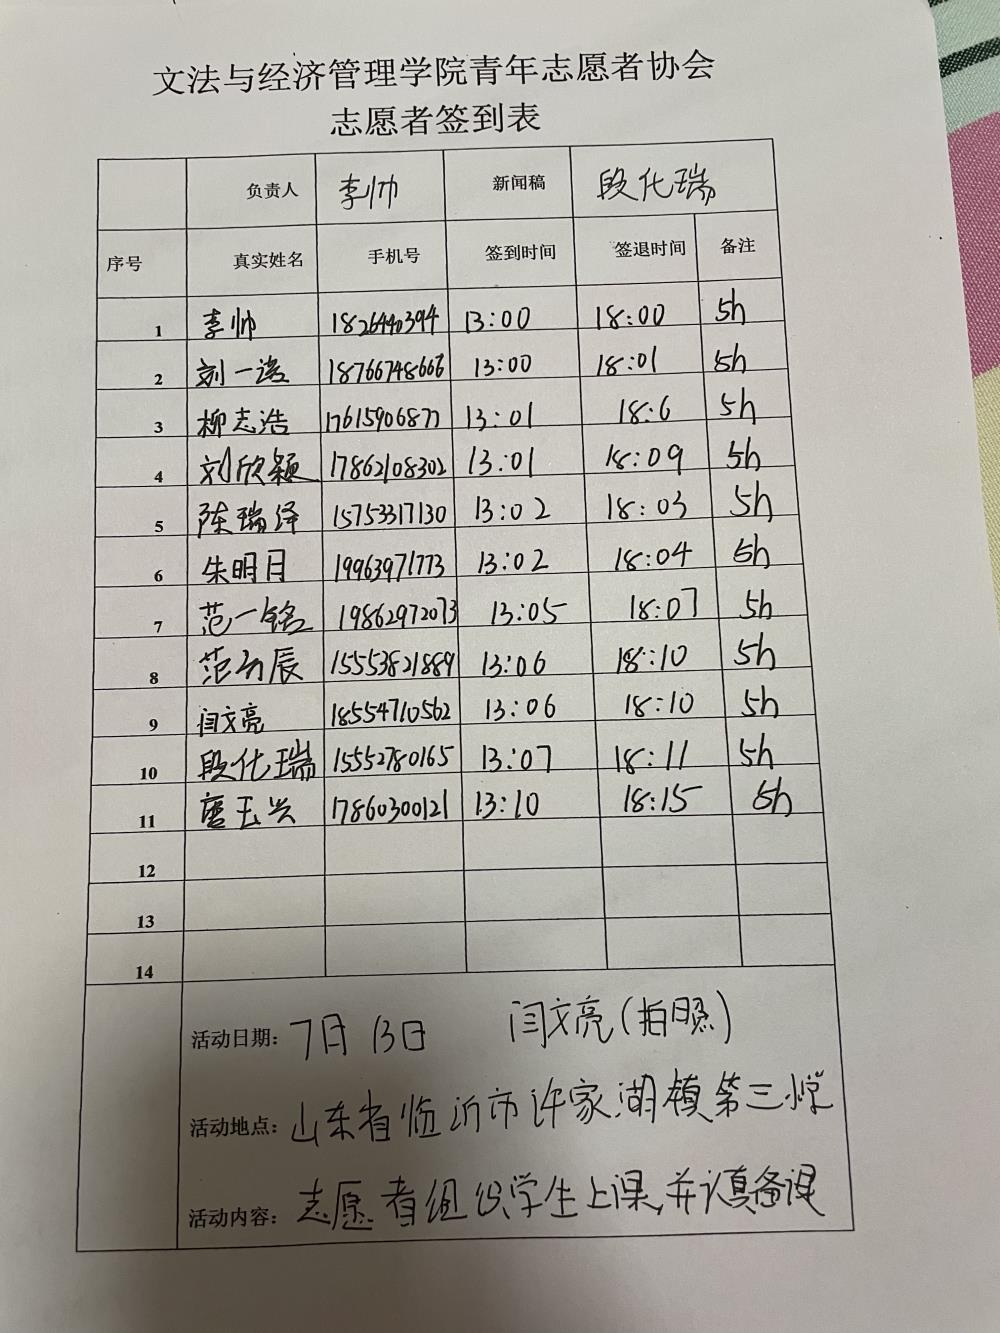 文法与经济管理学院青年志愿者协会
志愿者签到表
负责人 李帅 新闻稿 段化瑞
序号 真实姓名 手机号 签到时间 签退时间 备注
1 李帅 18264410394 13:00 18:00 5h
2 刘一诺 18766748666 13:00 18:01 5h
3 柳志浩 17615906877 13:01 18:6 5h
4 刘欣颖 17862108302 13:01 18:09 5h
5 陈瑞泽 15753317130 13:02 18:03 5h
6 朱明月 19963971773 13:02 18:04 5h
7 范一铭 19862972073 13:05 18:07 5h
8 范 辰 15553821889 13:06 18:10 5h
9 闫文亮 18554710562 13:06 18:10 5h
10 段化瑞 15552780165 13:07 18:11 5h
11 唐玉兴 17860300121 13:10 18:15 5h
12
13
14
活动日期：7月13日 闫文亮(拍照)
活动地点：山东省临沂市许家湖镇第三小学
活动内容：志愿者组织学生上课,并认真备课